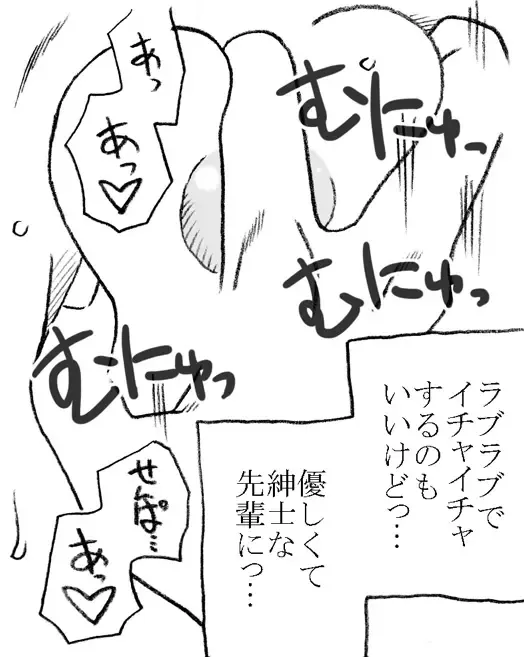 むにゅっ
あっ
あっ♡
むにゅっ
むにゅっ
ラブラブで
イチャイチャ
するのも
いいけどっ…
優しくて
紳士な
先輩にっ…
せんぱ…
あっ♡